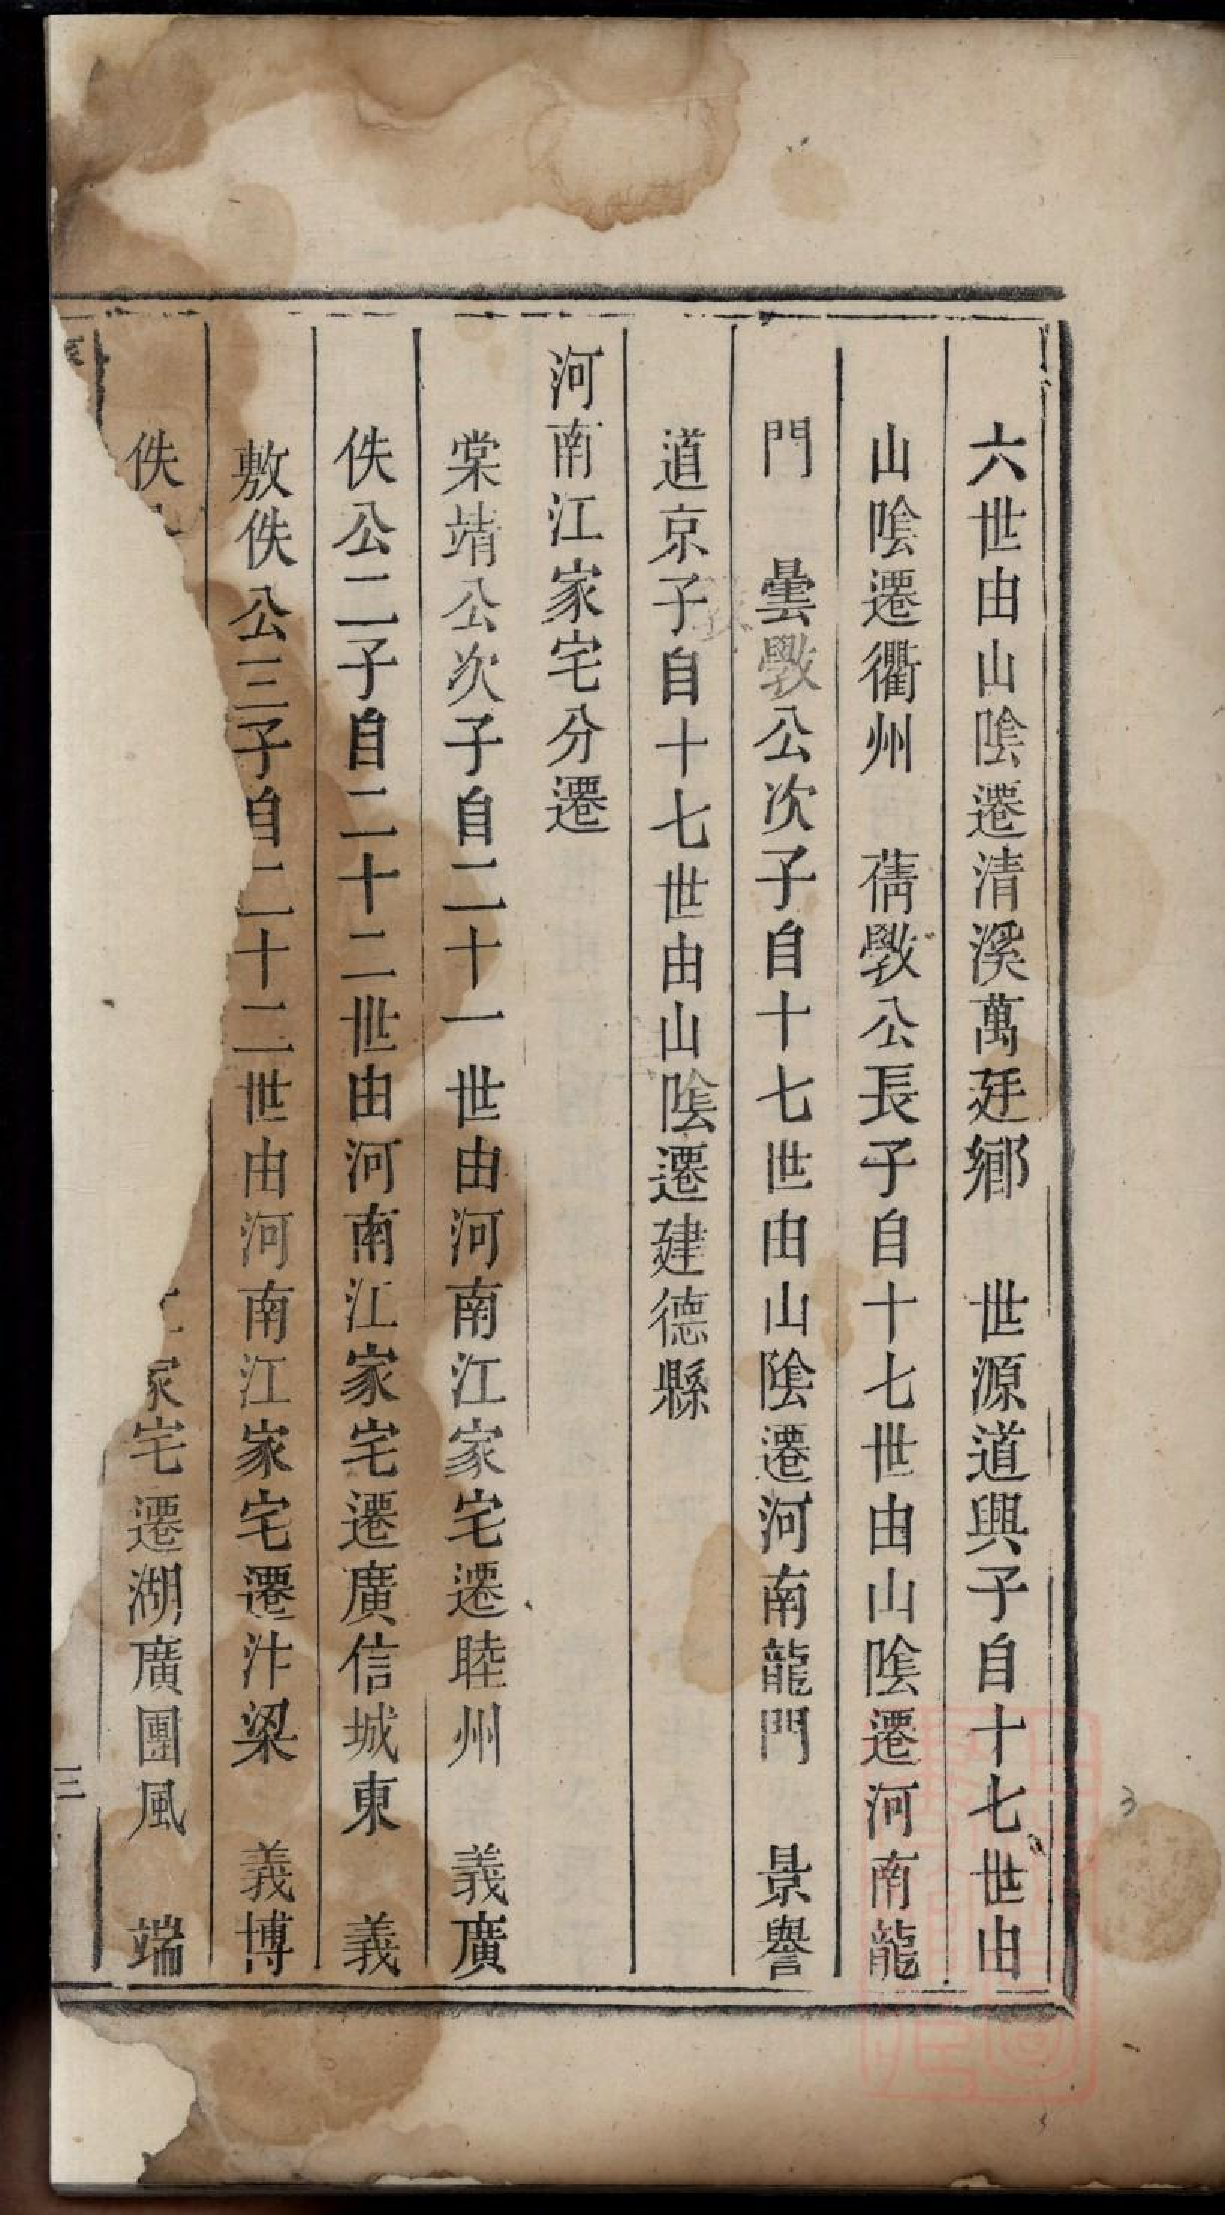 六世由山陰遷清溪萬廷鄉　世源道興子自十七世由
山陰遷衢州　蒨斅公長子自十七世由山陰遷河南龍
門　曇斅公次子自十七世由山陰遷河南龍門　景譽
道京子自十七世由山陰遷建德縣
河南江家宅分遷
棠靖公次子自二十一世由河南江家宅遷睦州　義廣
佚公二子自二十二世由河南江家宅遷廣信城東　義
敷佚公三子自二十二世由河南江家宅遷汴梁　義博
佚　家宅遷湖廣團風　端
三